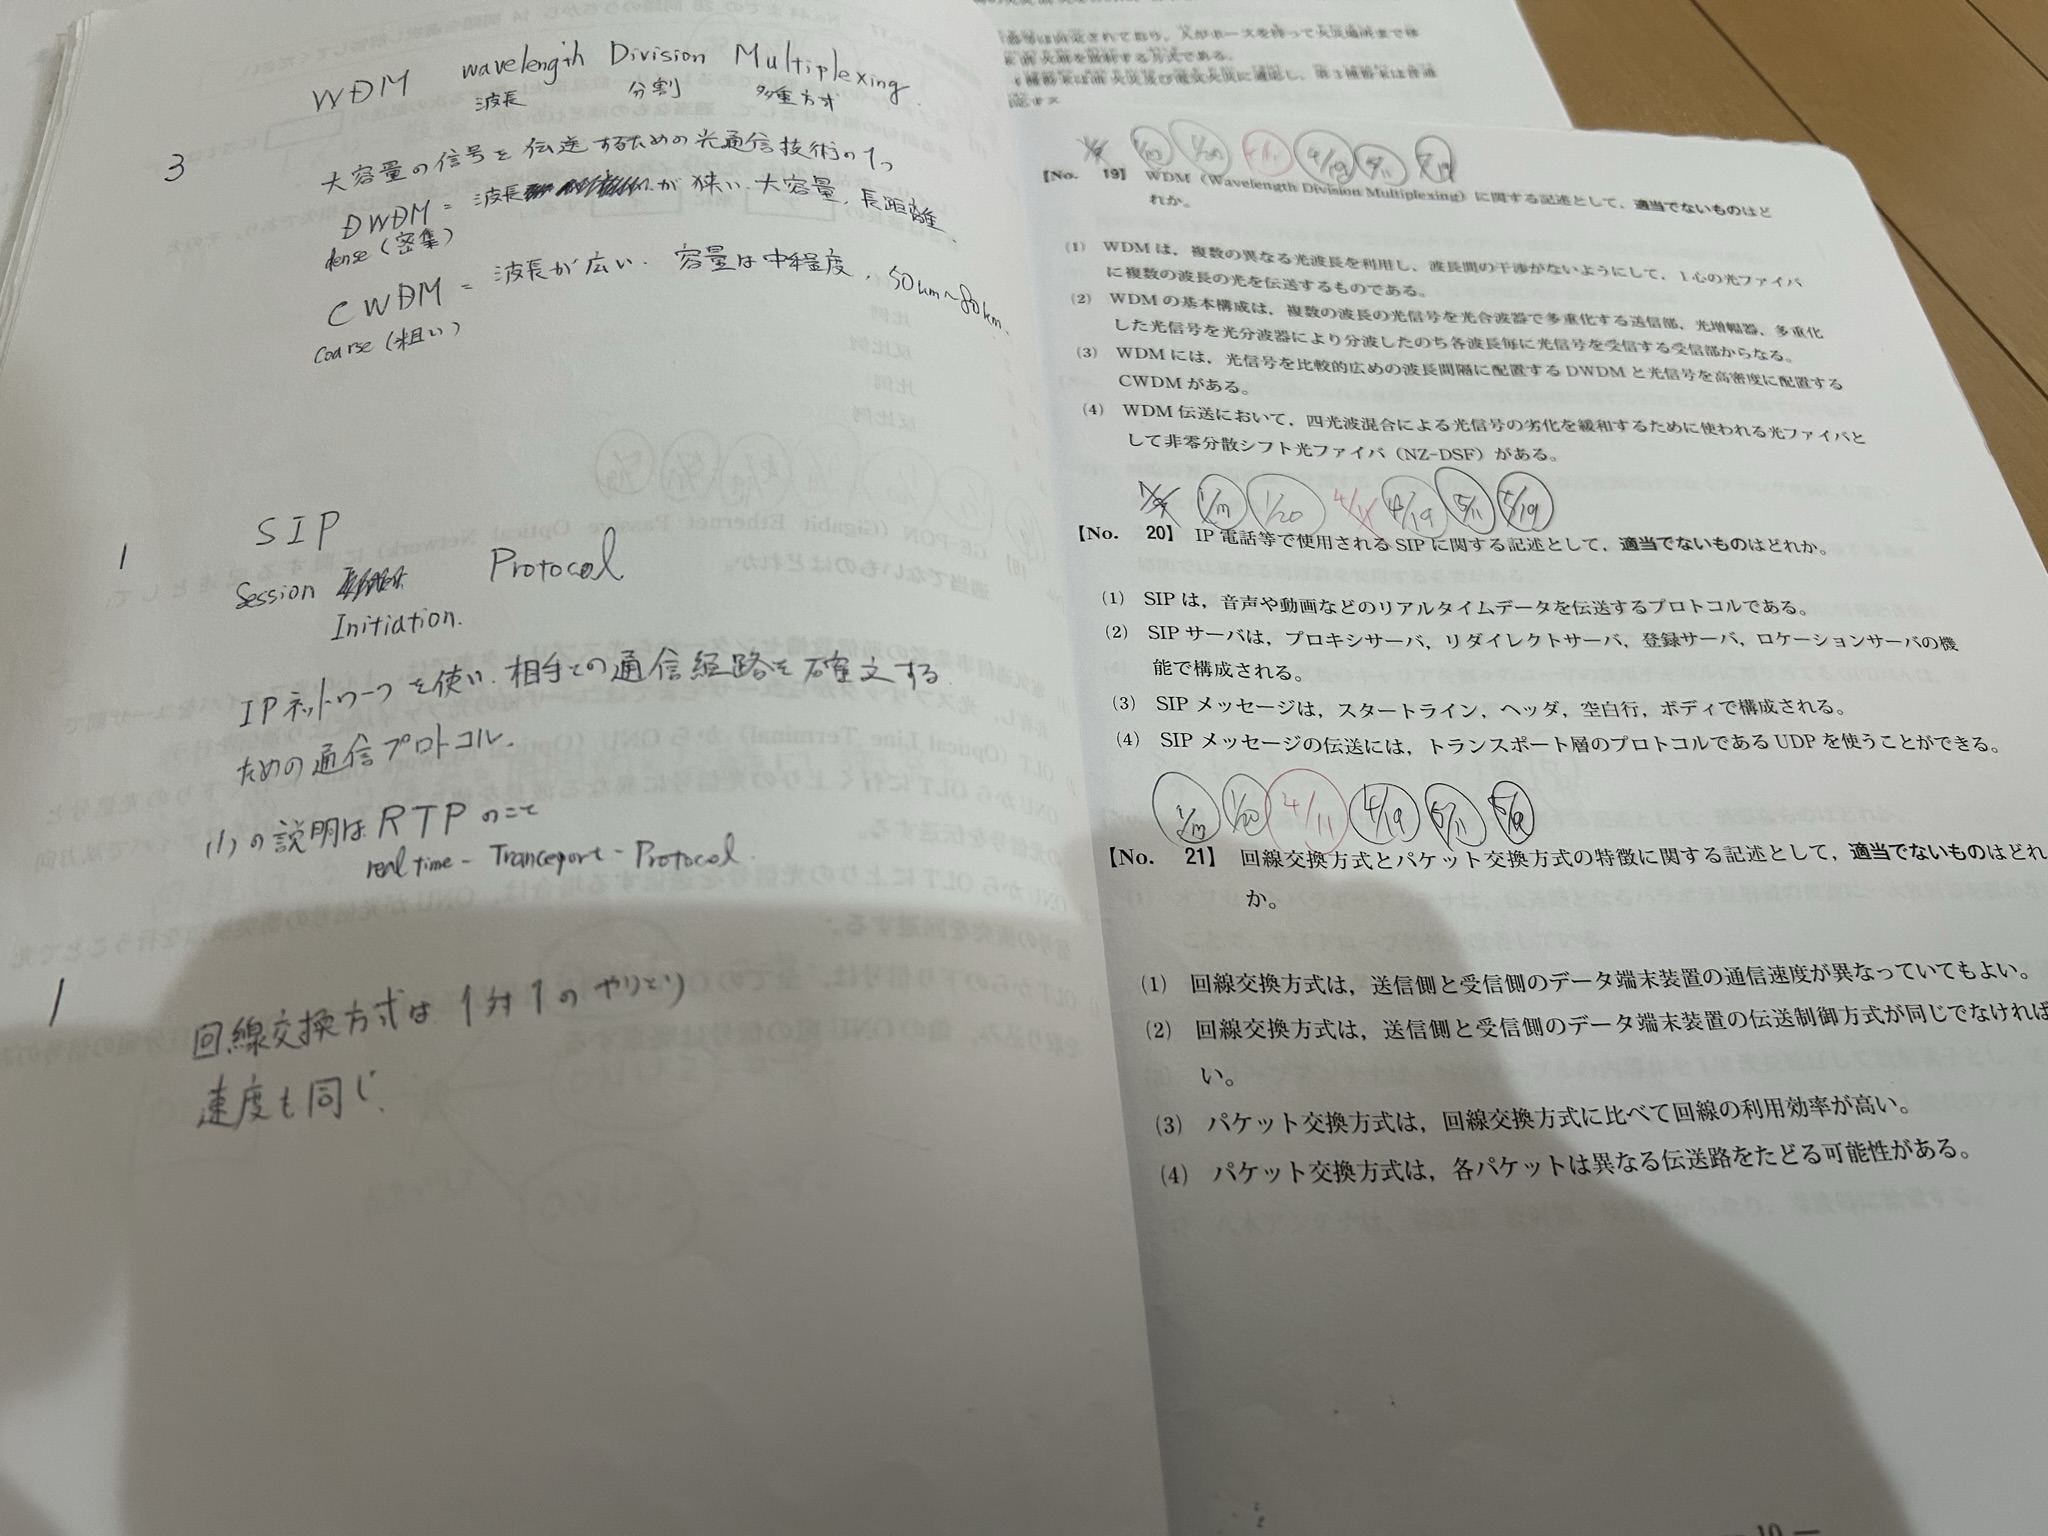 WDM wavelength Division Multiplexing.
波長 分割 多重方式
3
大容量の信号を伝送するための光通信技術の1つ
DWDM = 波長が狭い. 大容量, 長距離.
dense (密集)
CWDM = 波長が広い. 容量は中程度, 50km~80km.
coarse (粗い)
1
SIP
Session Protocol
Initiation.
IPネットワークを使い. 相手との通信経路を確立する
ための通信プロトコル.
(1)の説明はRTPのこと
real time - Tranceport - Protocol.
1
回線交換方式は1対1のやりとり
速度も同じ.
1/20 4/11 4/19 5/11 5/19
【No. 19】 WDM(Wavelength Division Multiplexing)に関する記述として,適当でないものはど
れか。
(1) WDMは,複数の異なる光波長を利用し,波長間の干渉がないようにして,1心の光ファイバ
に複数の波長の光を伝送するものである。
(2) WDMの基本構成は,複数の波長の光信号を光合波器で多重化する送信部,光増幅器,多重化
した光信号を光分波器により分波したのち各波長毎に光信号を受信する受信部からなる。
(3) WDMには,光信号を比較的広めの波長間隔に配置するDWDMと光信号を高密度に配置する
CWDMがある。
(4) WDM伝送において,四光波混合による光信号の劣化を緩和するために使われる光ファイバと
して非零分散シフト光ファイバ(NZ-DSF)がある。
1/20 4/11 4/19 5/11 5/19
【No. 20】 IP電話等で使用されるSIPに関する記述として,適当でないものはどれか。
(1) SIPは,音声や動画などのリアルタイムデータを伝送するプロトコルである。
(2) SIPサーバは,プロキシサーバ,リダイレクトサーバ,登録サーバ,ロケーションサーバの機
能で構成される。
(3) SIPメッセージは,スタートライン,ヘッダ,空白行,ボディで構成される。
(4) SIPメッセージの伝送には,トランスポート層のプロトコルであるUDPを使うことができる。
1/20 4/11 4/19 5/11 5/19
【No. 21】 回線交換方式とパケット交換方式の特徴に関する記述として,適当でないものはどれ
か。
(1) 回線交換方式は,送信側と受信側のデータ端末装置の通信速度が異なっていてもよい。
(2) 回線交換方式は,送信側と受信側のデータ端末装置の伝送制御方式が同じでなければ
い。
(3) パケット交換方式は,回線交換方式に比べて回線の利用効率が高い。
(4) パケット交換方式は,各パケットは異なる伝送路をたどる可能性がある。